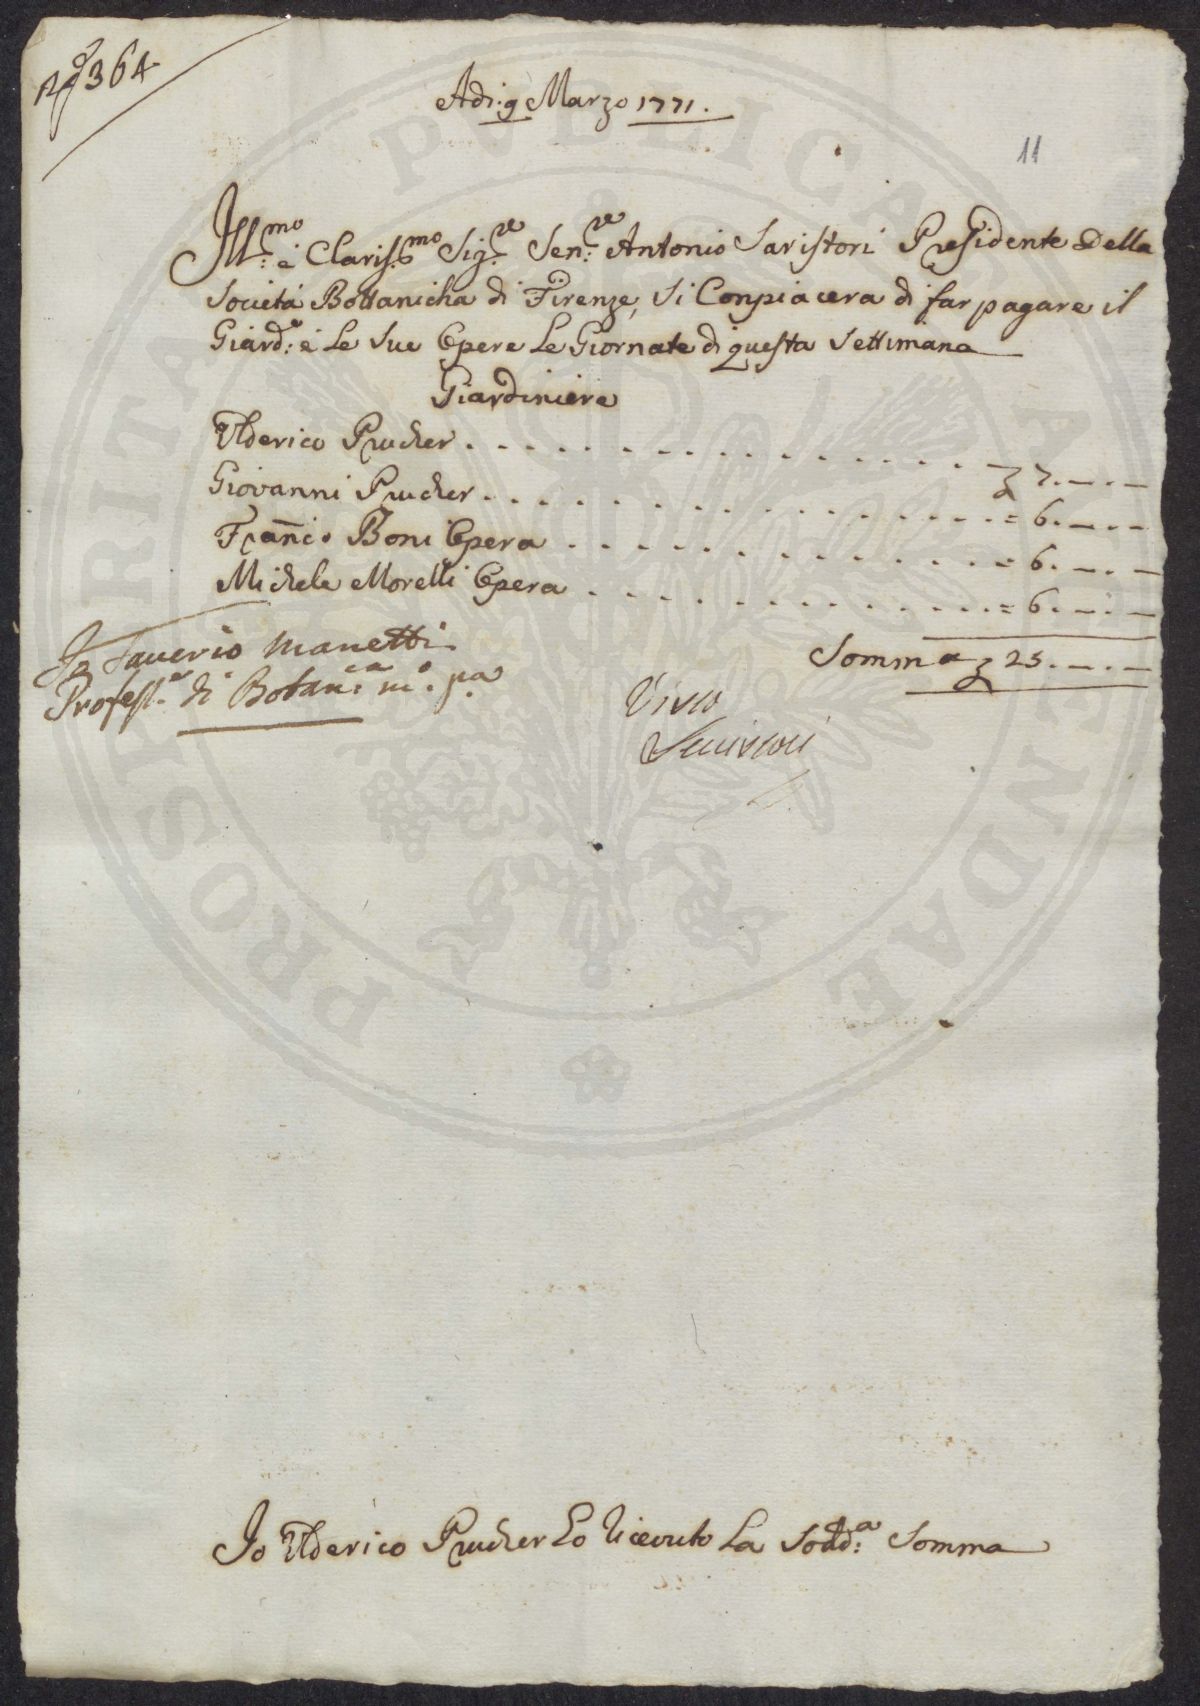 No 364
Adi: 9 Marzo 1771.
11
Ill:mo e Claris:mo Sig:re Sen:re Antonio Saristori Presidente Della
Società Bottanicha di Firenze, Si Conpiacera di far pagare il
Giard:e e Le Sue Opere Le Giornate di questa Settimana
Giardiniere
Ulderico Prucher . . . . . . . . . . . . . . . . £ 7.—.—
Giovanni Prucher . . . . . . . . . . . . . . . . = 6.—.—
Franc:o Boni Opera . . . . . . . . . . . . . . = 6.—.—
Michele Morelli Opera . . . . . . . . . . . . . = 6.—.—
Somma £ 25.—.—
Io Saverio Manetti
Profess:e di Botan:ca m:o pa
Visto
Serristori
Io Ulderico Prucher Ho Riceuto La Sodd:a Somma
PROSPERITATI PVBLICAE AVGENDAE